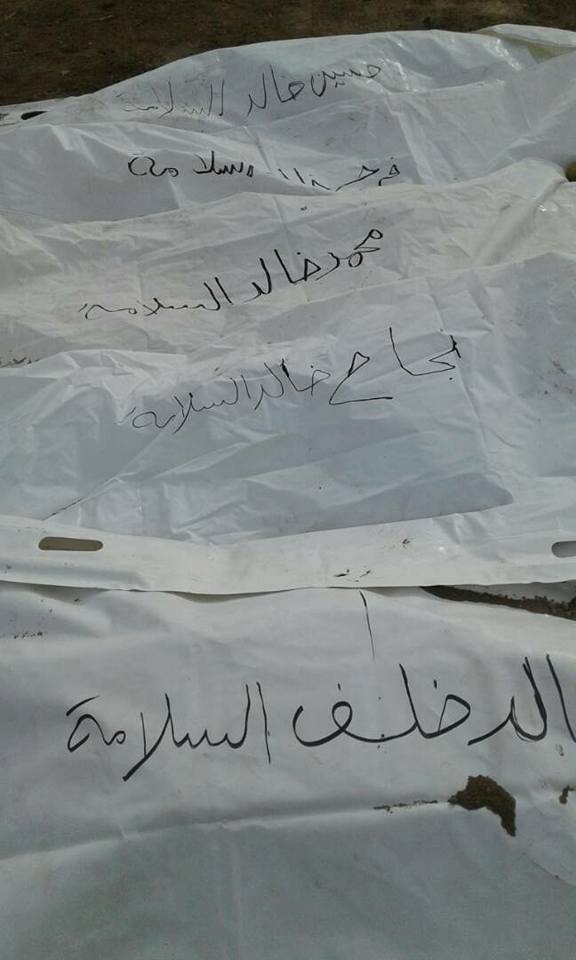 حسين خالد السلامة
السلامة
محمد خالد السلامة
نجاح خالد السلامة
الد خلف السلامة